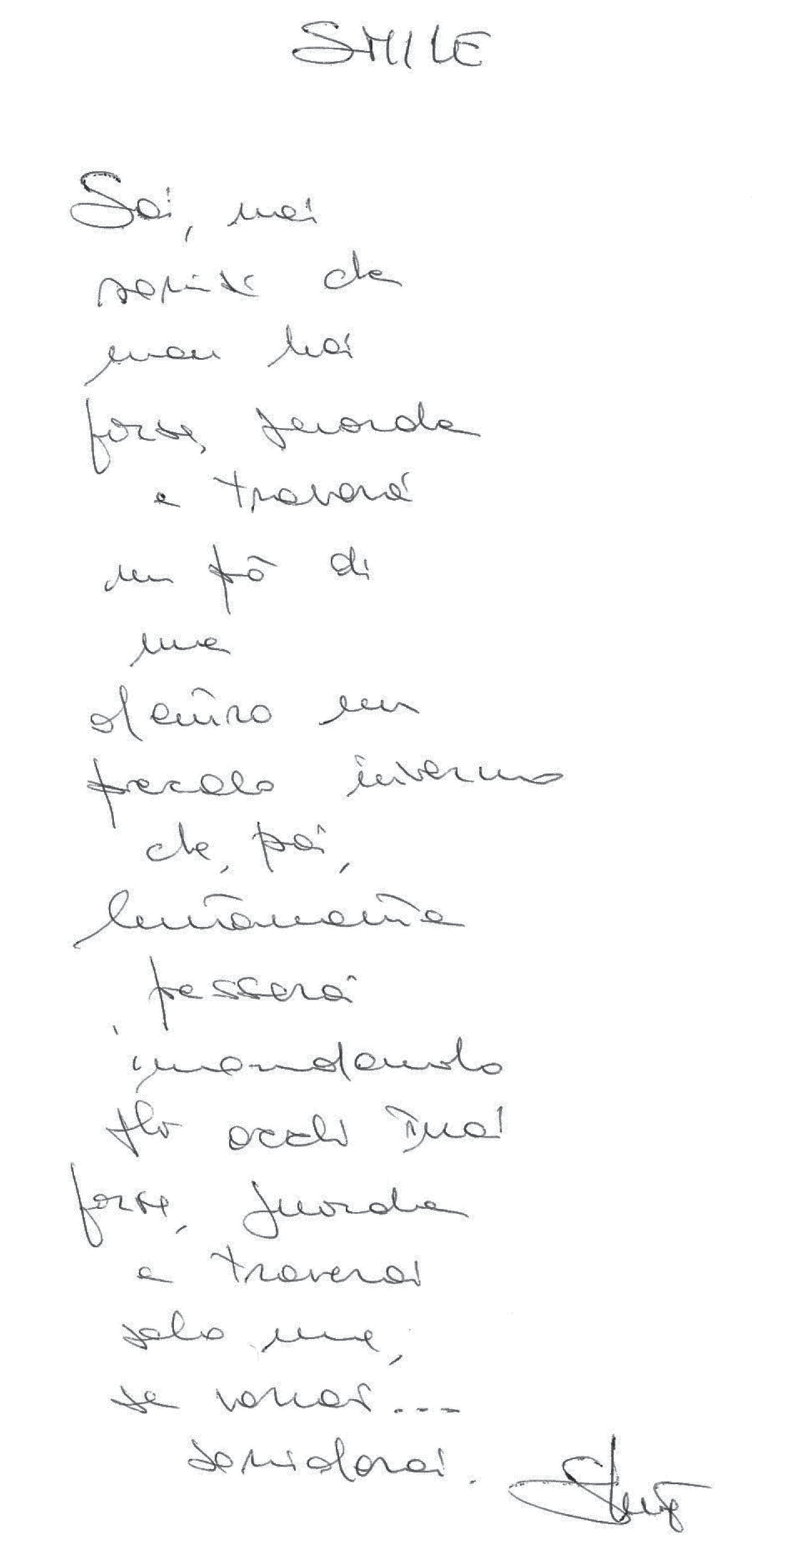 SMILE
Sai, mai
sorrisi che
mai hai
forse, guarda
e troverai
un pō di
me
dentro un
piccolo inverno
che, poi,
lentamente
passerà
inondando
gli occhi tuoi
forse, guarda
e troverai
solo me,
se vorrai...
sorriderai.